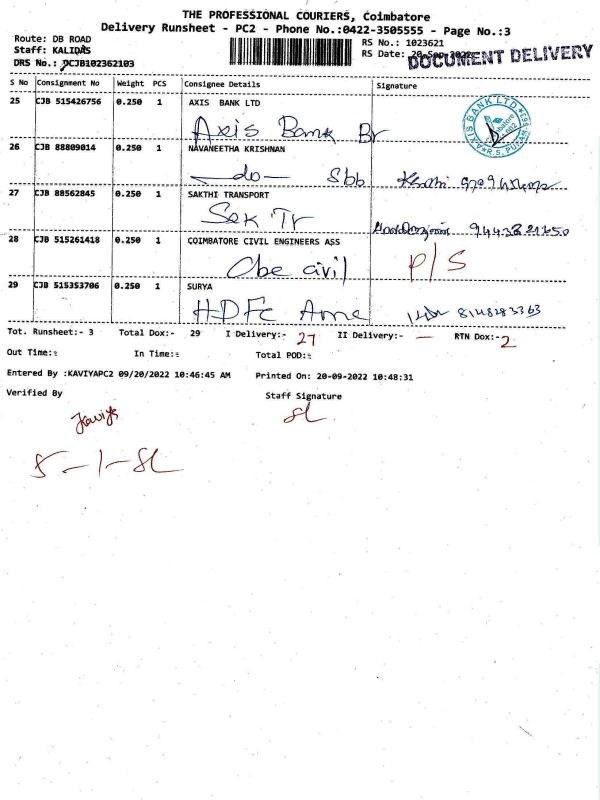 THE PROFESSIONAL COURIERS, Coimbatore
Delivery Runsheet - PC2 - Phone No.:0422-3505555 - Page No.:3
Route: DB ROAD
Staff: KALIDAS
DRS No.: DCJB102362103
RS No.: 1023621
RS Date: 20-Sep-2022
DOCUMENT DELIVERY
S No Consignment No Weight PCS Consignee Details Signature
25 CJB 515426756 0.250 1 AXIS BANK LTD
Axis Bank Br
AXIS BANK LTD
R.S. PURAM
26 CJB 88809014 0.250 1 NAVANEETHA KRISHNAN
-do- Sbb
27 CJB 88562845 0.250 1 SAKTHI TRANSPORT
Sak Tr
28 CJB 515261418 0.250 1 COIMBATORE CIVIL ENGINEERS ASS
Cbe civil P/S
29 CJB 515353706 0.250 1 SURYA
HDFC 8148283363
Tot. Runsheet:- 3 Total Dox:- 29 I Delivery:- 27 II Delivery:- — RTN Dox:- 2
Out Time:: In Time:: Total POD::
Entered By :KAVIYAPC2 09/20/2022 10:46:45 AM Printed On: 20-09-2022 10:48:31
Verified By Staff Signature
Kaviya SL
5-1-SL